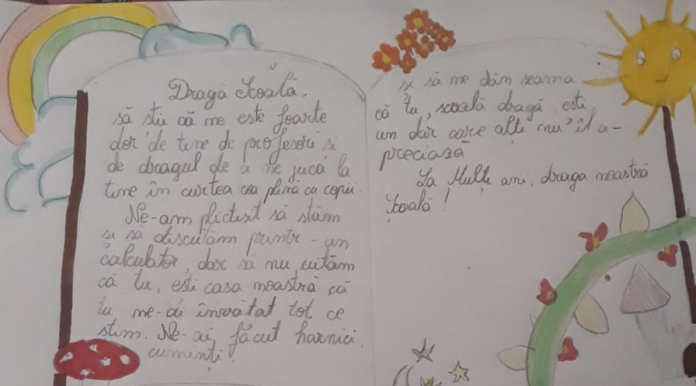 Dragă Școală,
să știi că ne este foarte
dor de tine de profesori și
de dragul de a ne juca la
tine în curtea cea plină cu copii.
Ne-am plictisit să stăm
și să discutăm printr-un
calculator, dar să nu uităm
că tu, ești casa noastră că
tu ne-ai învățat tot ce
știm. Ne-ai făcut harnici,
cuminți!
și să ne dăm seama
că tu, școală dragă ești
un dar care alți nu îl a-
preciază
La Mulți ani, draga noastră
școală!